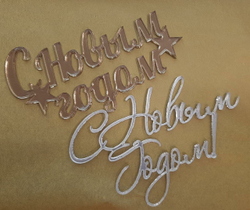 С Новым
годом
С Новым
Годом!